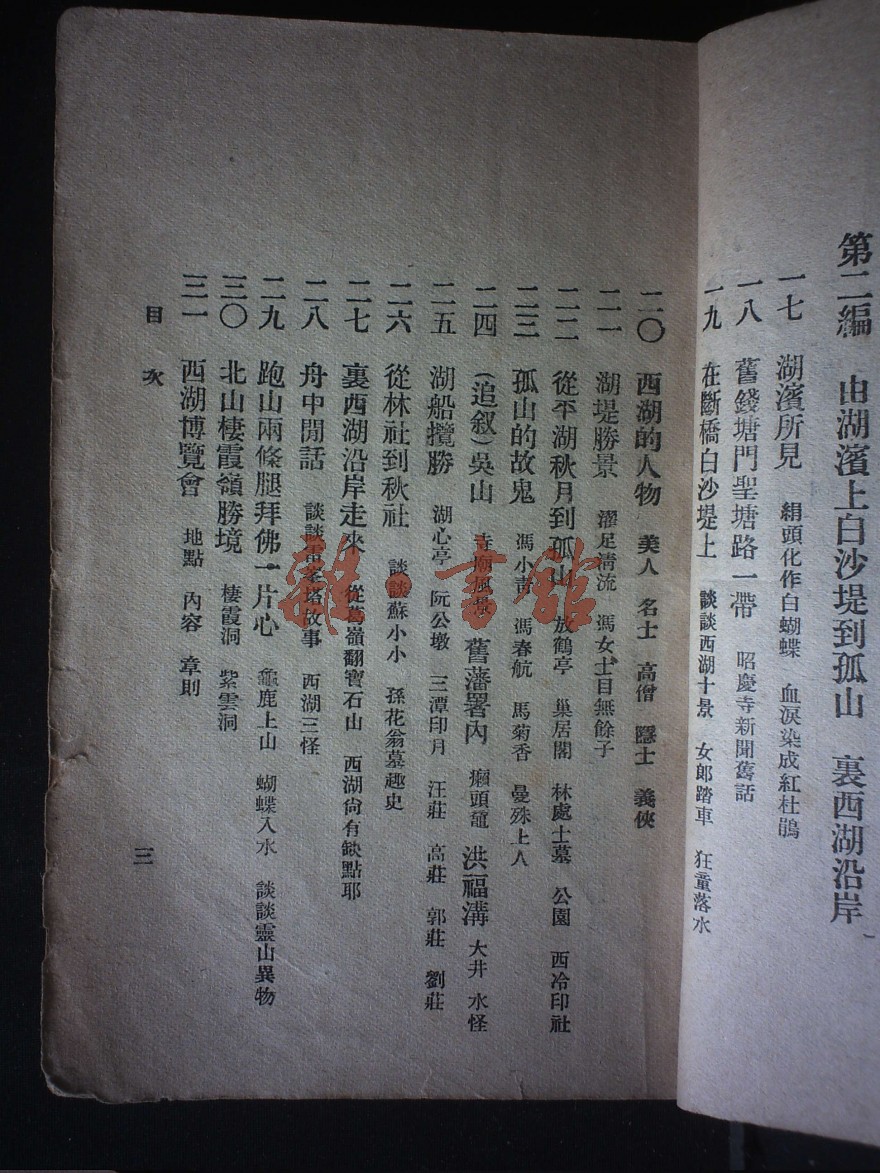 第二編　由湖濱上白沙堤到孤山　裏西湖沿岸
一七　湖濱所見　絹頭化作白蝴蝶　血淚染成紅杜鵑
一八　舊錢塘門聖塘路一帶　昭慶寺新聞舊話
一九　在斷橋白沙堤上　談談西湖十景　女郎踏車　狂童落水
二〇　西湖的人物　美人　名士　高僧　隱士　義俠
二一　湖堤勝景　濯足清流　馮女士目無餘子
二二　從平湖秋月到孤山　放鶴亭　巢居閣　林處士墓　公園　西冷印社
二三　孤山的故鬼　馮小青　馮春航　馬菊香　曼殊上人
二四　(追叙)吳山　寺廟風景　舊藩署內　癩頭黿　洪福溝　大井　水怪
二五　湖船攬勝　湖心亭　阮公墩　三潭印月　汪莊　高莊　郭莊　劉莊
二六　從林社到秋社　談談蘇小小　孫花翁墓趣史
二七　裏西湖沿岸走來　從葛嶺翻寶石山　西湖尙有缺點耶
二八　舟中閒話　談談雷峯塔故事　西湖三怪
二九　跑山兩條腿拜佛一片心　龜鹿上山　蝴蝶入水　談談靈山異物
三〇　北山棲霞嶺勝境　棲霞洞　紫雲洞
三一　西湖博覽會　地點　內容　章則
目次
三
雜·書館